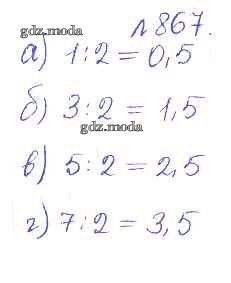 №867.
gdz.moda
а) 1:2 = 0,5
б) 3:2 = 1,5
gdz.moda
в) 5:2 = 2,5
г) 7:2 = 3,5